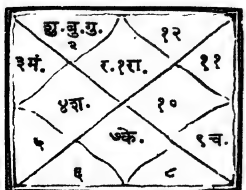 शु. बु. गु.
२ १२
३मं. र. १रा. ११
४श. १०
५ ७के. ९ च.
६ ८